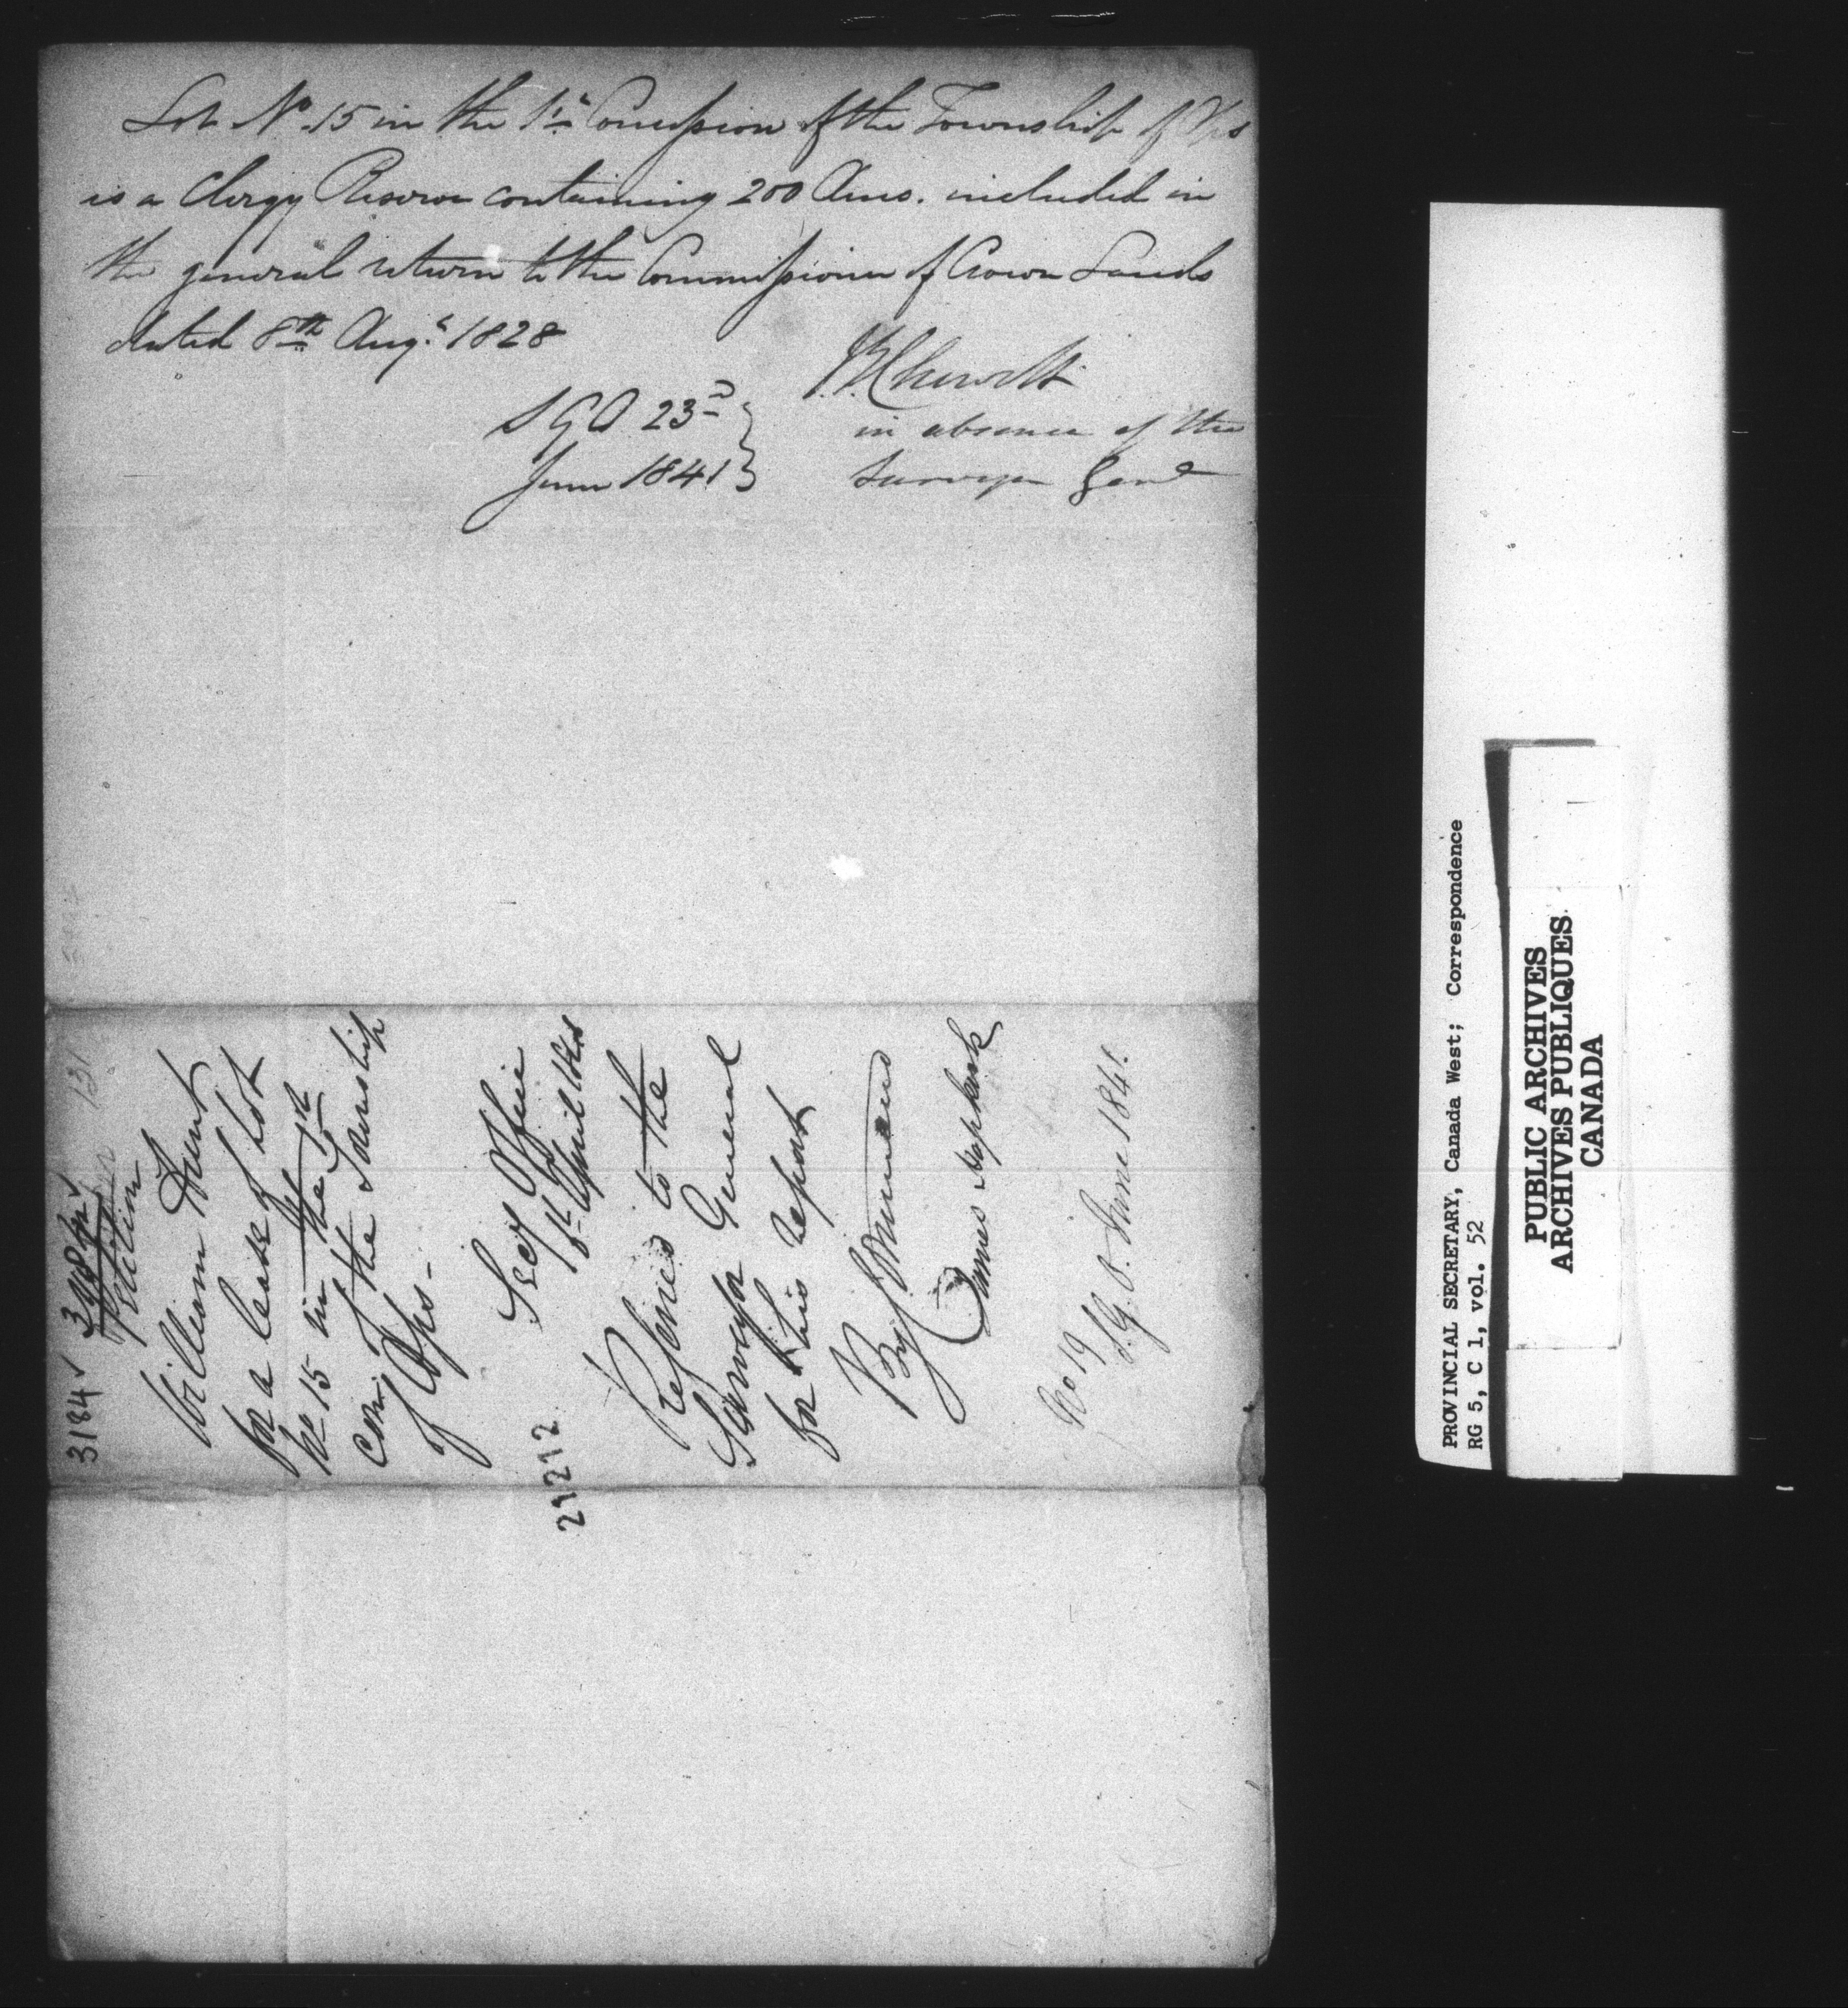 Lot No. 15 in the 1st Concession of the Township of Ops
is a Clergy Reserve containing 200 Acres. included in
the general return to the Commissioner of Crown Lands
dated 8th Augt. 1828
S G O 23rd
June 1841
in absence of the
Surveyor Genl
3184
131
Petition
William Hunt
for a lease of Lot
No 15 in the 1st
con. of the Township
of Ops.
Secy Office
April
Referred to the
Surveyor General
for his report
By Command
James Hopkirk
21212
No 19
S. G. O. June 1841.
PROVINCIAL SECRETARY, Canada West; Correspondence
RG 5, C 1, vol. 52
PUBLIC ARCHIVES
ARCHIVES PUBLIQUES
CANADA